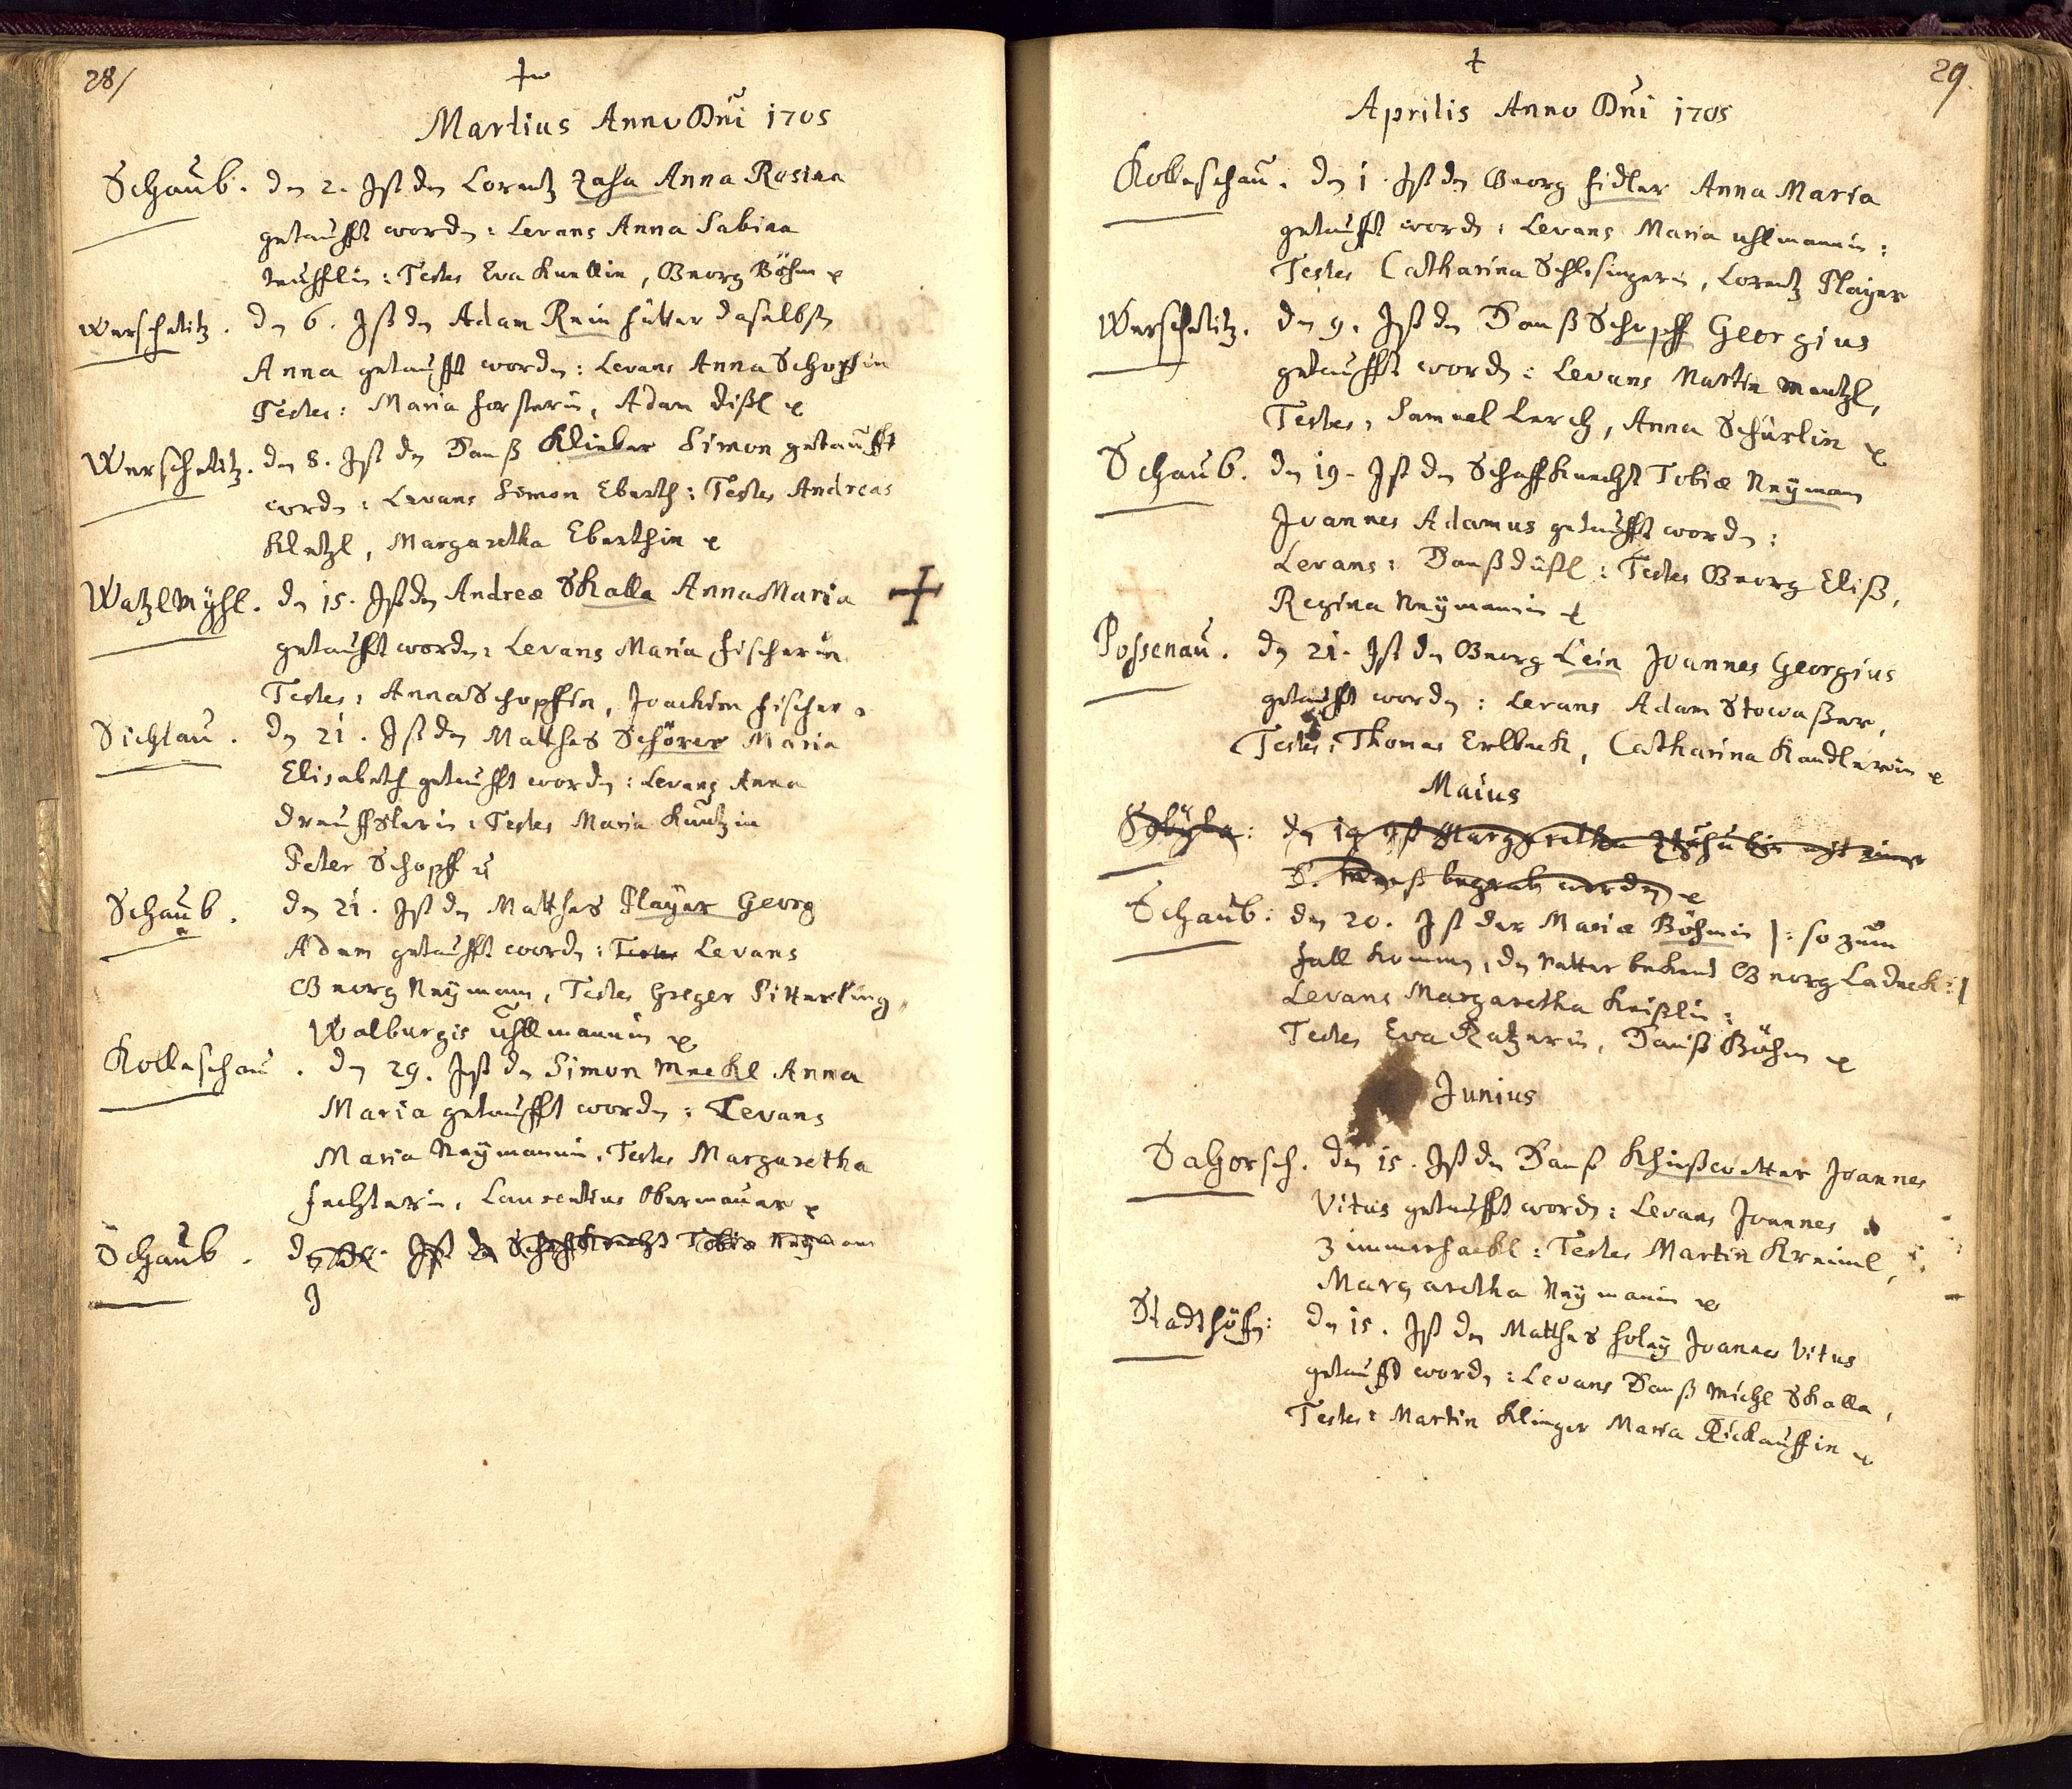 28/
Martius Anno Dni 1705
Schaub. den 2. Ist den Lorentz Zasa Anna Rosina
getaufft worden: Levans Anna Sabina
Testes Eva Kuntlin, Georg Böhm
Werschetitz. den 6. Ist den Adam Rein hütter daselbsten
Anna getaufft worden: Levans Anna Schopfin
Testes: Maria forsterin, Adam dißl
Werschetitz. den 8. Ist den Hanß Klieber Simon getaufft
worden: Levans Simon Eberth: Testes Andreas
Kletzl, Margaretha Eberthin
WatzlMühl. den 15. Ist den Andreæ Skalla Anna Maria
getaufft worden: Levans Maria fischerin
Testes: Anna Schopffin, Joachim fischer.
Sichlau. den 21. Ist den Matthes Schörer Maria
Elisabeth getaufft worden: Levans Anna
Testes Maria Kuntzin
Peter Schopff
Schaub. den 21. Ist den Matthes Player Georg
Adam getaufft worden: Testes Levans
Georg Neÿmann, Testes Greger Pitterling,
Walburgis Uhlmannin
Kolleschau. den 29. Ist den Simon Meckl Anna
Maria getaufft worden: Levans
Maria Neÿmannin, Testes Margaretha
fechterin, Laurentius Obermauer
Schaub. Ist den Schaffknecht Tobiæ Neÿman
29.
Aprilis Anno Dni 1705
Kolleschau. den 1. Ist den Georg fidler Anna Maria
getaufft worden: Levans Maria uhlmannin:
Testes Catharina Schlesingerin, Lorentz Player
Werschetitz. den 9. Ist den Hanß Schopff Georgius
getaufft worden: Levans Martin Mentzl,
Testes, Samuel Lerch, Anna Schürlin
Schaub. den 19. Ist den Schaffknecht Tobiæ Neÿman
Joannes Adamus getaufft worden:
Levans: Hanß düßl: Testes Georg Eliß,
Regina Neÿmanin
Possenau. den 21. Ist den Georg Lein Joannes Georgius
getaufft worden: Levans Adam Stowaßer,
Testes: Thomas Erlbeck, Catharina Kandlerin
Maius
den 19 Ist Margaretha mit einer
begraben worden
Schaub: den 20. Ist der Mariæ Böhmin |: so zum
fall kommen, den Vatter bekend Georg Ladeck:|
Levans Margaretha Keißlin:
Testes Eva Ratzerin, Hanß Böhm
Junius
Sahorsch. den 15. Ist den Hanß Khießwetter Joannes
Vitus getaufft worden: Levans Joannes
Zimmerhackl: Testes Martin Kreiml,
Margaretha Neÿmanin
Stadthöfen: den 15. Ist den Matthes holeÿ Joannes Vitus
getaufft worden: Levans Hanß Michl Skalla,
Testes: Martin Klinger Maria Rickauffin